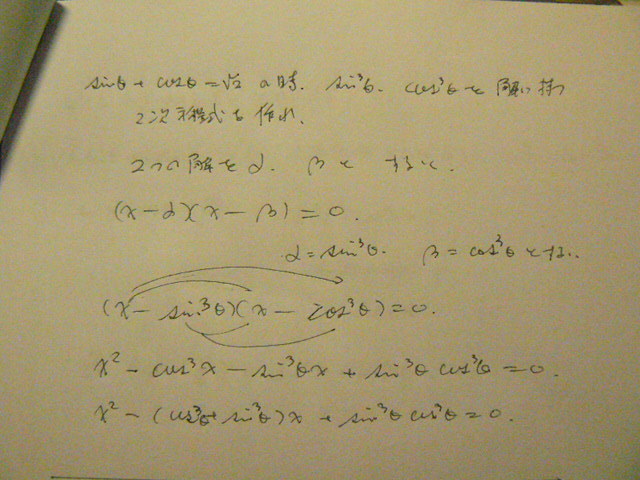 sinθ + cosθ = √2 の時. sin³θ. cos³θ を 解に持つ
2次方程式を 作れ.
2つの解を α. β と すると.
(x-α)(x-β) = 0.
α = sin³θ. β = cos³θ とすい
(x - sin³θ)(x - cos³θ) = 0.
x² - cos³x - sin³θx + sin³θ cos³θ = 0.
x² - (cos³θ + sin³θ)x + sin³θ cos³θ = 0.